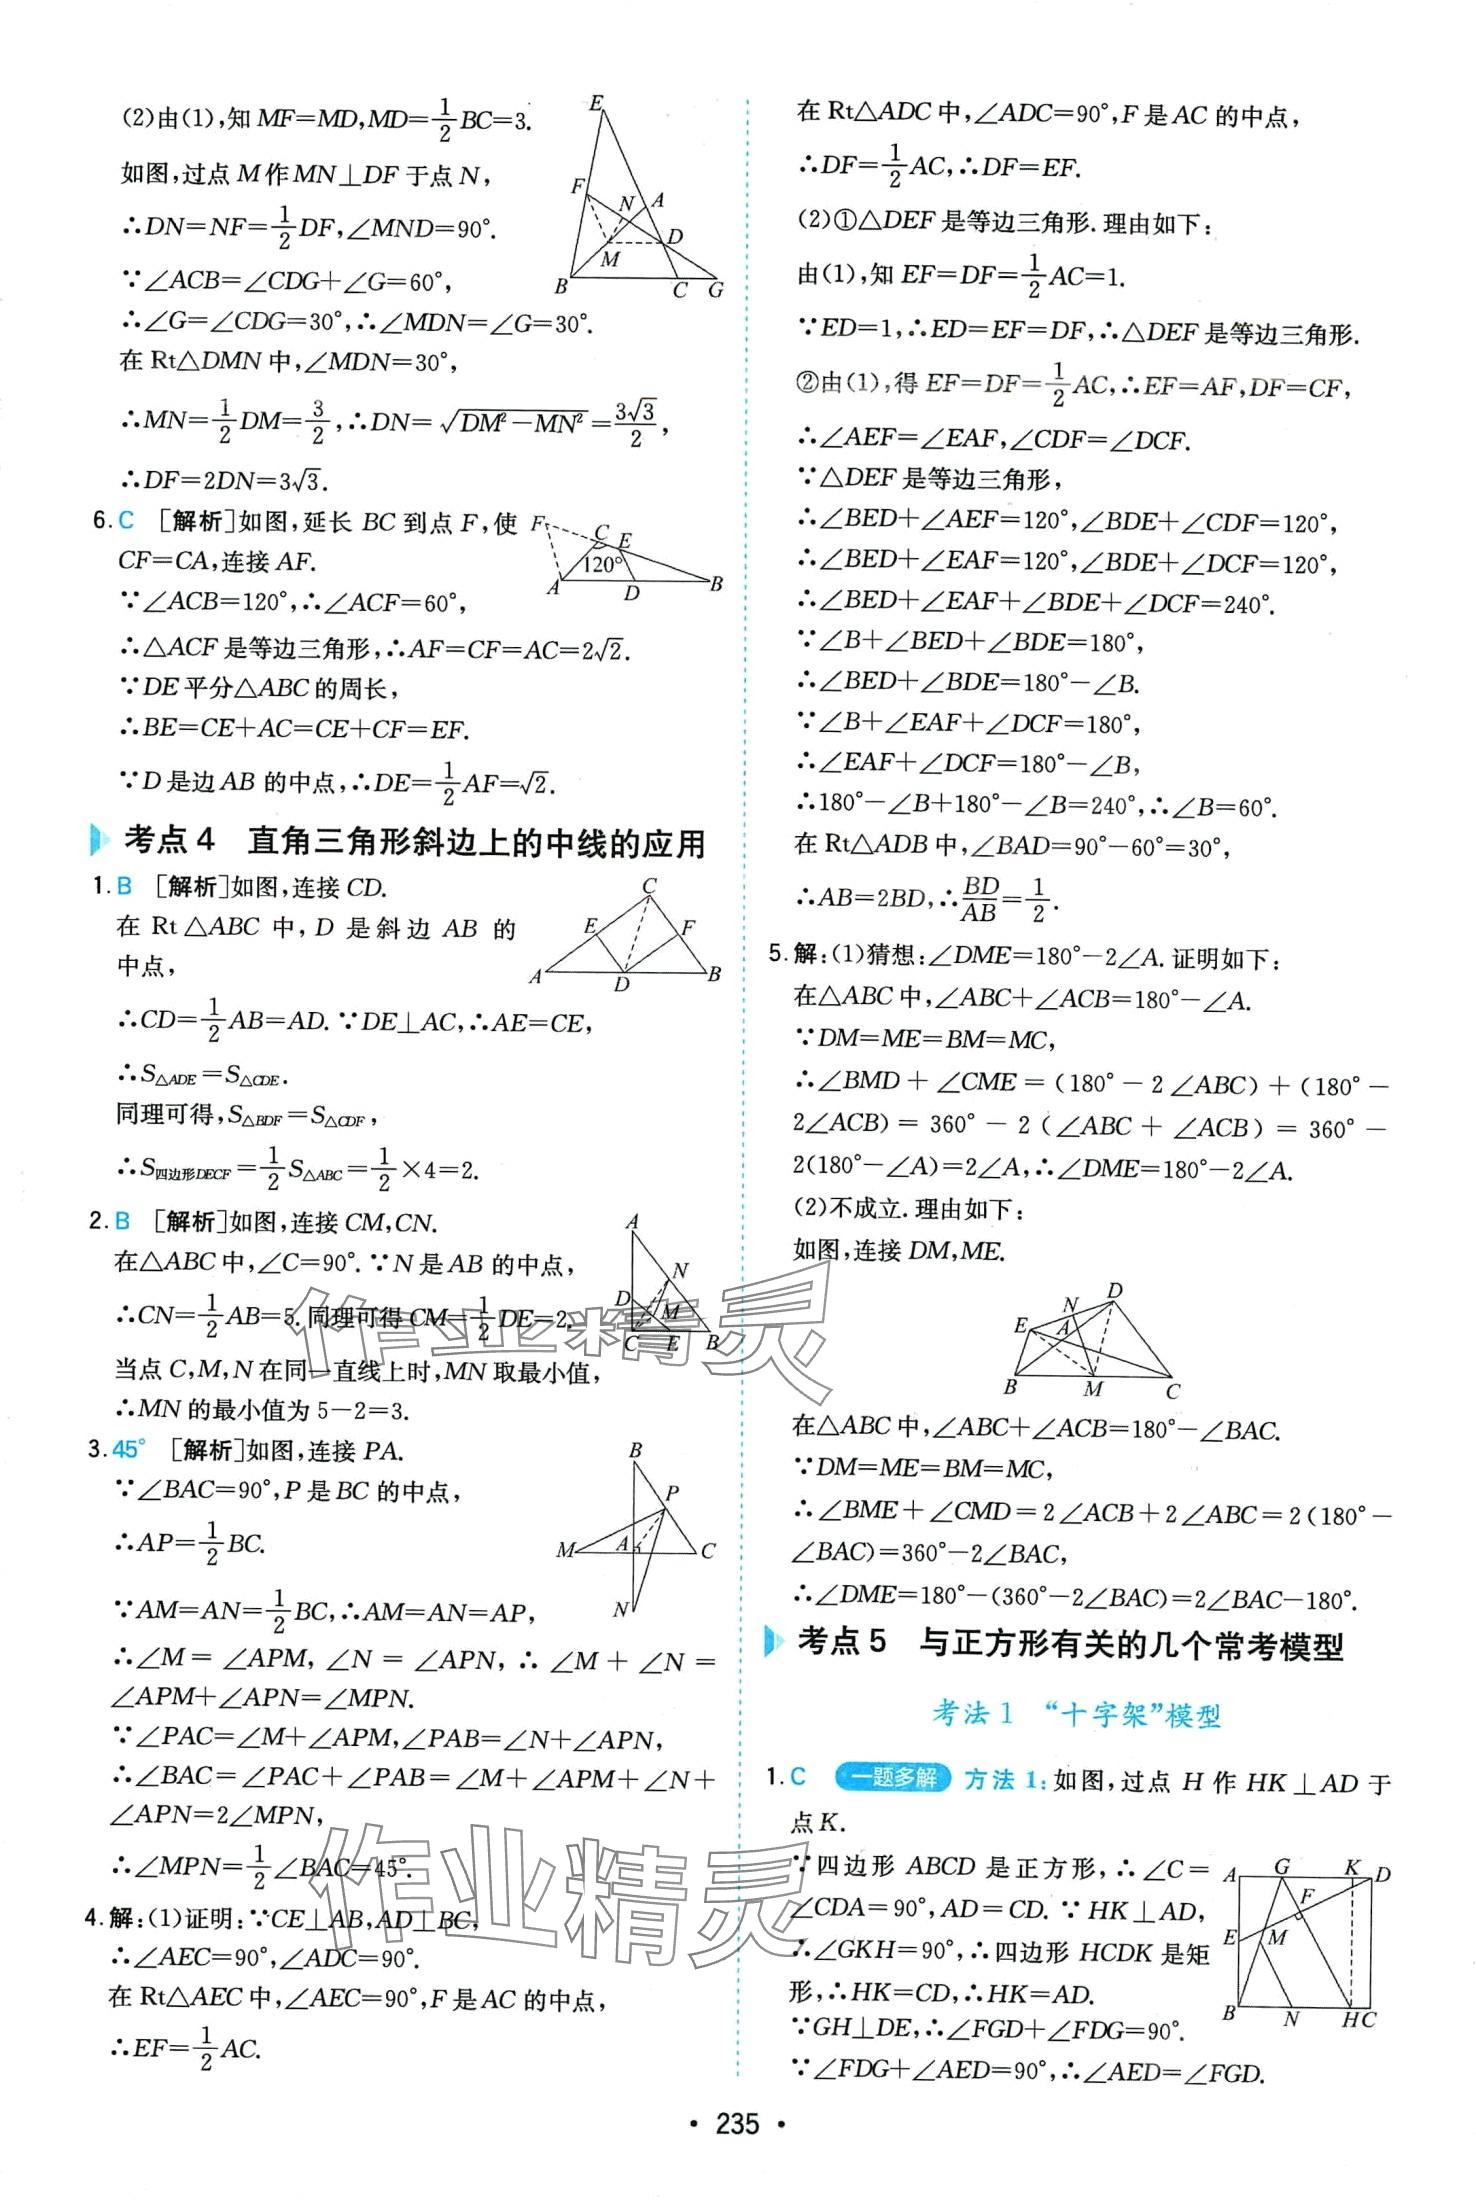 (2)由(1),知 MF=MD,MD=1/2BC=3.
如图,过点 M 作 MN⊥DF 于点 N,
∴DN=NF=1/2DF,∠MND=90°.
∵∠ACB=∠CDG+∠G=60°,
∴∠G=∠CDG=30°,∴∠MDN=∠G=30°.
在 Rt△DMN 中,∠MDN=30°,
∴MN=1/2DM=3/2,∴DN=√(DM²−MN²)=3√3/2,
∴DF=2DN=3√3.
E
F
N
A
D
M
B
C
G
6. C [解析]如图,延长 BC 到点 F,使
CF=CA,连接 AF.
∵∠ACB=120°,∴∠ACF=60°,
∴△ACF 是等边三角形,∴AF=CF=AC=2√2.
∵DE 平分△ABC 的周长,
∴BE=CE+AC=CE+CF=EF.
∵D 是边 AB 的中点,∴DE=1/2AF=√2.
F
C
E
120°
A
D
B
考点 4 直角三角形斜边上的中线的应用
1. B [解析]如图,连接 CD.
在 Rt△ABC 中,D 是斜边 AB 的
中点,
∴CD=1/2AB=AD.∵DE⊥AC,∴AE=CE,
∴S△ADE=S△CDE.
同理可得,S△BDF=S△CDF,
∴S四边形DECF=1/2S△ABC=1/2×4=2.
C
E
F
A
D
B
2. B [解析]如图,连接 CM,CN.
在△ABC 中,∠C=90°.∵N 是 AB 的中点,
∴CN=1/2AB=5.同理可得 CM=1/2DE=2.
当点 C,M,N 在同一直线上时,MN 取最小值,
∴MN 的最小值为 5−2=3.
A
N
D
M
C
E
B
3. 45° [解析]如图,连接 PA.
∵∠BAC=90°,P 是 BC 的中点,
∴AP=1/2BC.
∵AM=AN=1/2BC,∴AM=AN=AP,
∴∠M=∠APM,∠N=∠APN,∴∠M+∠N=
∠APM+∠APN=∠MPN.
∵∠PAC=∠M+∠APM,∠PAB=∠N+∠APN,
∴∠BAC=∠PAC+∠PAB=∠M+∠APM+∠N+
∠APN=2∠MPN,
∴∠MPN=1/2∠BAC=45°.
B
P
M
A
C
N
4. 解:(1)证明:∵CE⊥AB,AD⊥BC,
∴∠AEC=90°,∠ADC=90°.
在 Rt△AEC 中,∠AEC=90°,F 是 AC 的中点,
∴EF=1/2AC.
在 Rt△ADC 中,∠ADC=90°,F 是 AC 的中点,
∴DF=1/2AC,∴DF=EF.
(2)①△DEF 是等边三角形.理由如下:
由(1),知 EF=DF=1/2AC=1.
∵ED=1,∴ED=EF=DF,∴△DEF 是等边三角形.
②由(1),得 EF=DF=1/2AC,∴EF=AF,DF=CF,
∴∠AEF=∠EAF,∠CDF=∠DCF.
∵△DEF 是等边三角形,
∴∠BED+∠AEF=120°,∠BDE+∠CDF=120°,
∴∠BED+∠EAF=120°,∠BDE+∠DCF=120°,
∴∠BED+∠EAF+∠BDE+∠DCF=240°.
∵∠B+∠BED+∠BDE=180°,
∴∠BED+∠BDE=180°−∠B.
∵∠B+∠EAF+∠DCF=180°,
∴∠EAF+∠DCF=180°−∠B,
∴180°−∠B+180°−∠B=240°,∴∠B=60°.
在 Rt△ADB 中,∠BAD=90°−60°=30°,
∴AB=2BD,∴BD/AB=1/2.
5. 解:(1)猜想:∠DME=180°−2∠A.证明如下:
在△ABC 中,∠ABC+∠ACB=180°−∠A.
∵DM=ME=BM=MC,
∴∠BMD+∠CME=(180°−2∠ABC)+(180°−
2∠ACB)=360°−2(∠ABC+∠ACB)=360°−
2(180°−∠A)=2∠A,∴∠DME=180°−2∠A.
(2)不成立.理由如下:
如图,连接 DM,ME.
D
N
E
A
B
M
C
在△ABC 中,∠ABC+∠ACB=180°−∠BAC.
∵DM=ME=BM=MC,
∴∠BME+∠CMD=2∠ACB+2∠ABC=2(180°−
∠BAC)=360°−2∠BAC,
∴∠DME=180°−(360°−2∠BAC)=2∠BAC−180°.
考点 5 与正方形有关的几个常考模型
考法 1 “十字架”模型
1. C 一题多解 方法 1:如图,过点 H 作 HK⊥AD 于
点 K.
∵四边形 ABCD 是正方形,∴∠C=
∠CDA=90°,AD=CD.∵HK⊥AD,
∴∠GKH=90°,∴四边形 HCDK 是矩
形,∴HK=CD,∴HK=AD.
∵GH⊥DE,∴∠FGD+∠FDG=90°.
∵∠FDG+∠AED=90°,∴∠AED=∠FGD.
A
G
K
D
F
E
M
B
N
H
C
作业精灵
作业精灵
• 235 •